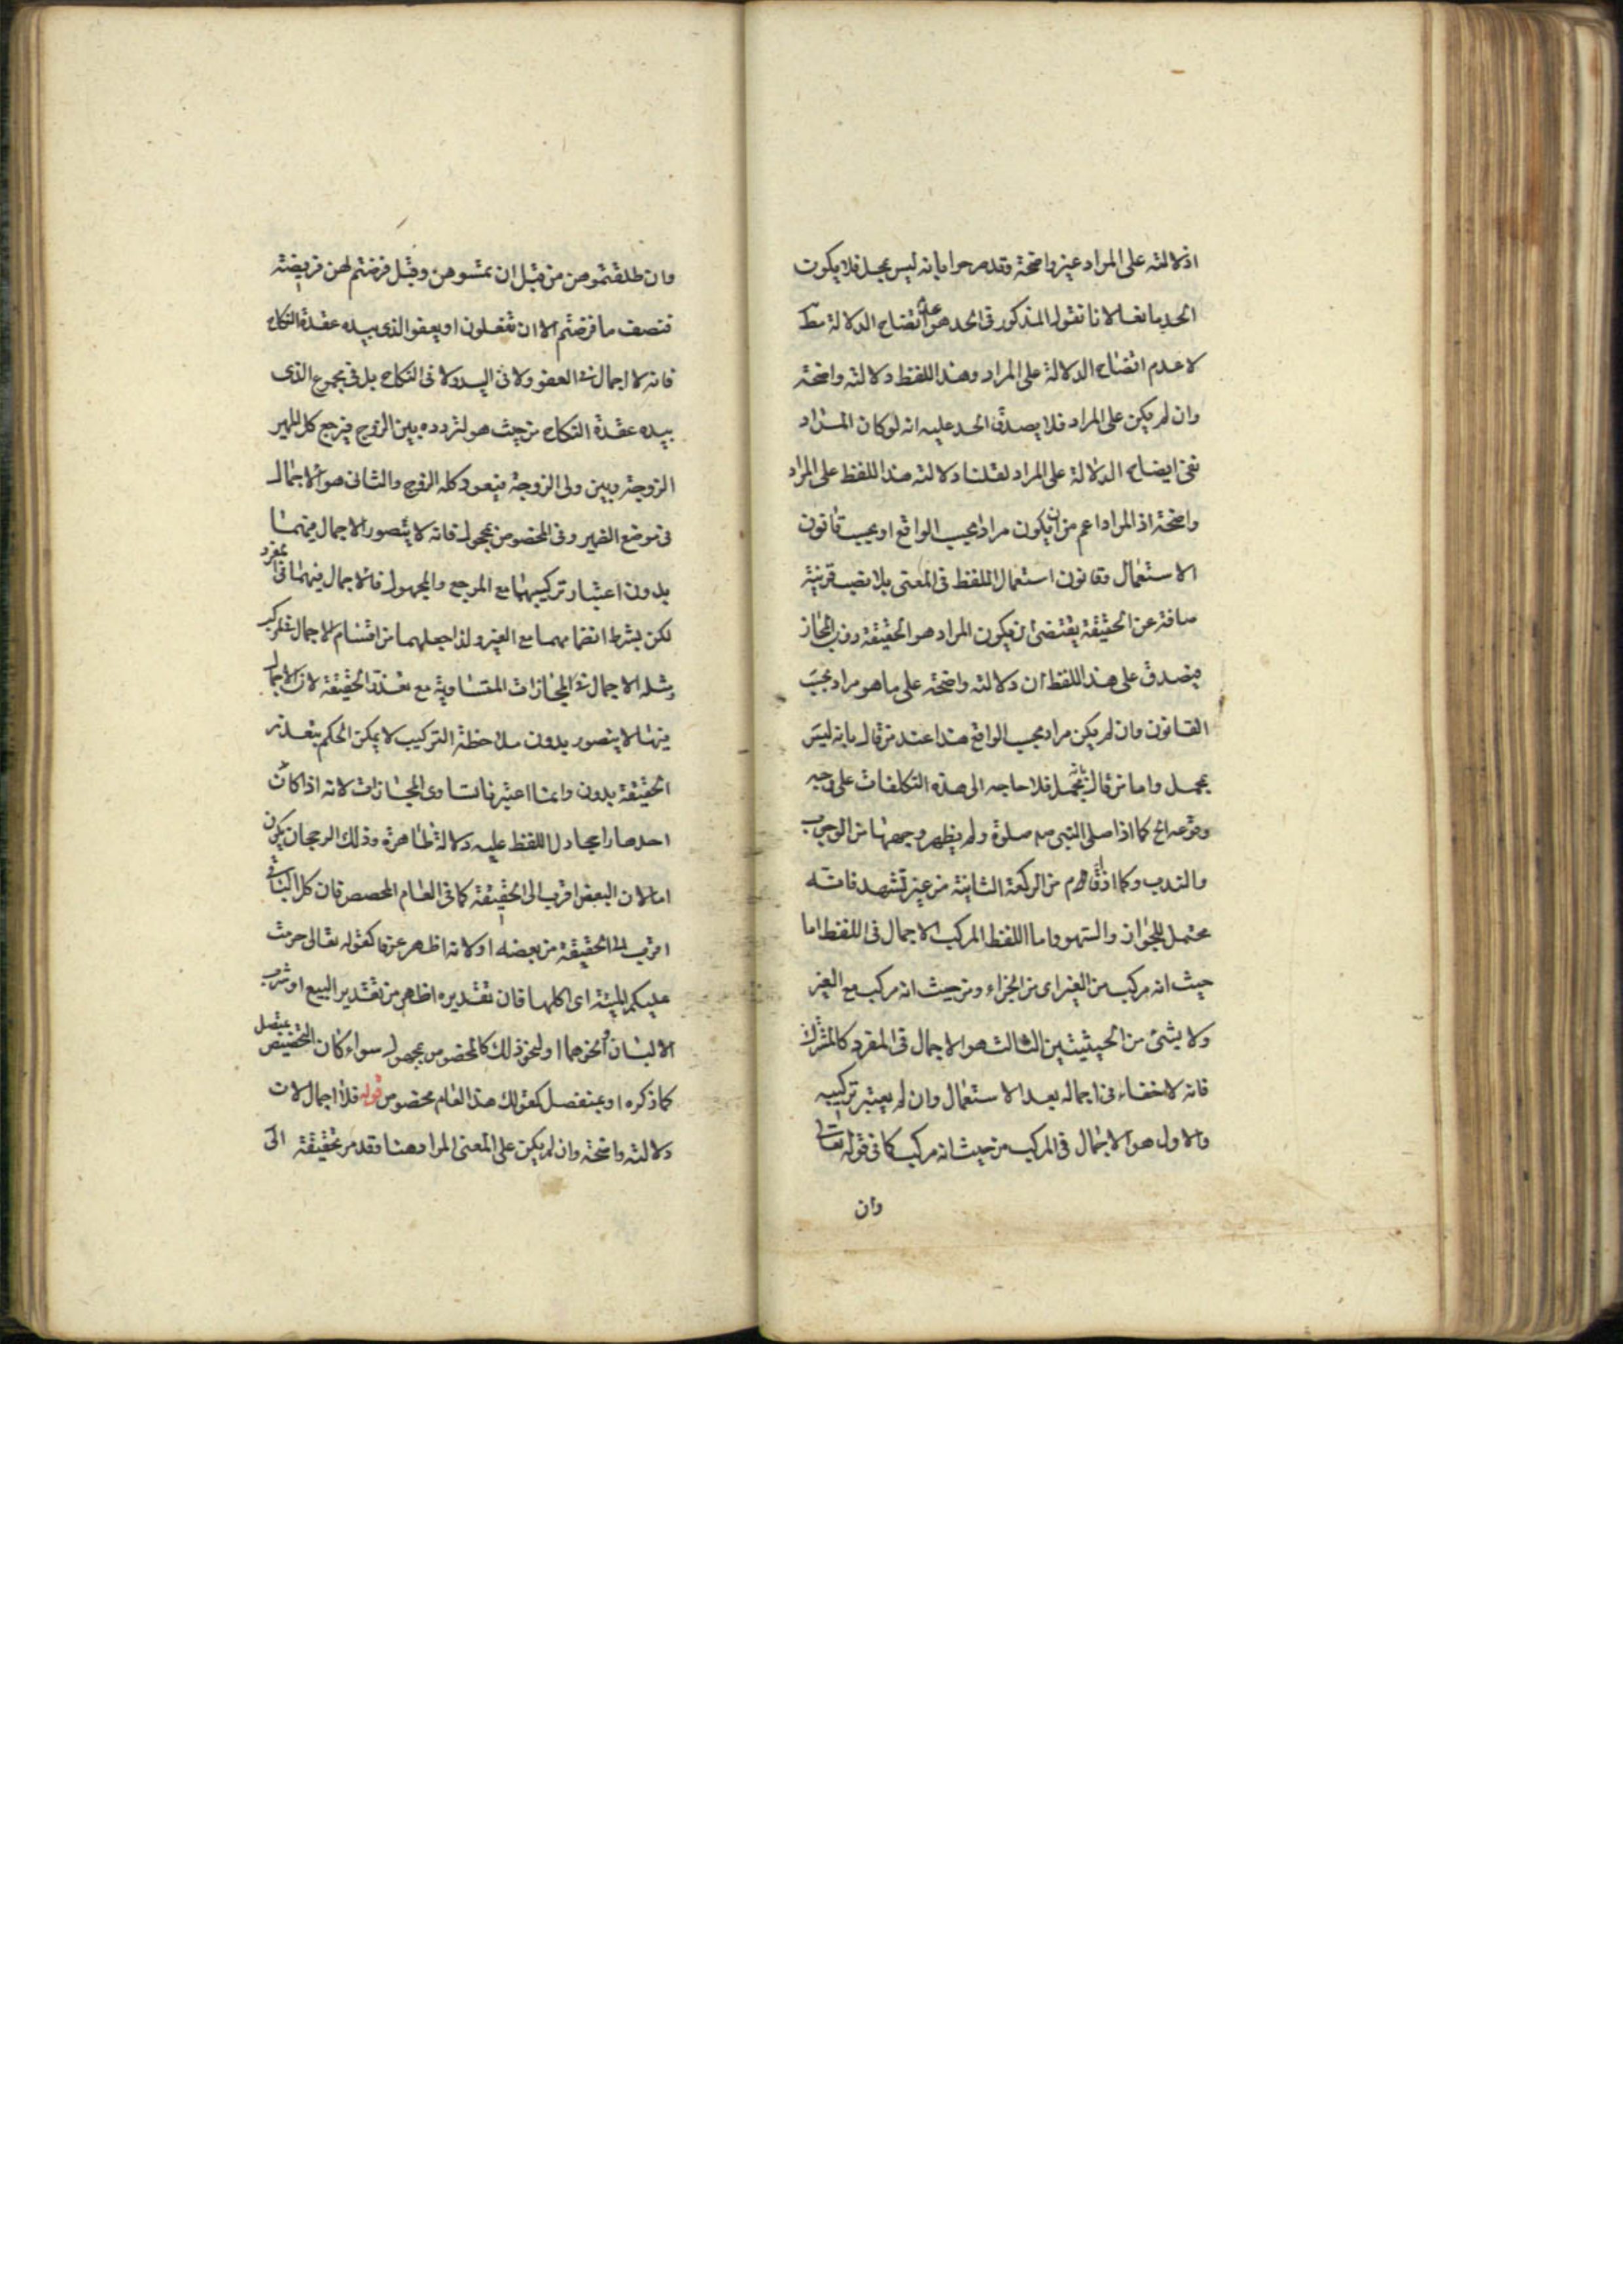 اذ دلالته على المراد غير واضحة وقد صرحوا بانه ليس بمجمل فلا يكون
الحد مانعا لانا نقول المذكور في الحد هو عدم اتضاح الدلالة مط
لا عدم اتضاح الدلالة على المراد وهذا اللفظ دلالته واضحة
وان لم يكن على المراد فلا يصدق الحد عليه انه لو كان المراد
نفى ايضاح الدلالة على المراد لقلنا دلالة هذا اللفظ على المراد
واضحة اذ المراد اعم من ان يكون مرادا بحسب الواقع او بحسب قانون
الاستعمال وقانون استعمال اللفظ في المعنى بلا نصب قرينة
صافة عن الحقيقة يقتضى ان يكون المراد هو الحقيقة دون المجاز
فيصدق على هذا اللفظ ان دلالته واضحة على ما هو مراد بحسب
القانون وان لم يكن مراد بحسب الواقع هذا عند من قال بانه ليس
بمجمل واما من قال بانه مجمل فلا حاجه الى هذه التكلفات على وجه
وقوعه الخ كما اذا صلى النبى صلوة ولم يظهر وجهها من الوجوب
والندب وكما اذا قام من الركعة الثانية من غير تشهد فانه
محتمل للجواز والسهو واما اللفظ المركب الاجمال في اللفظ اما
حيث انه مركب من الغير اى من الجزاء ومن حيث انه مركب مع الغير
ولا بشئ من الحيثيتين الثالث هو الاجمال في المفرد كالمشترك
فانه لا خفاء فى اجماله بعد الاستعمال وان لم يعتبر تركيبه
والاول هو الاجمال في المركب من حيث انه مركب كما في قوله تعالى
وان
وان طلقتموهن من قبل ان تمسوهن وقبل فرضتم لهن فريضة
فنصف ما فرضتم الا ان تفعلون او يعفو الذى بيده عقدة النكاح
فانه لا اجمال في العفو ولا في اليد ولا في النكاح بل في مجموع الذى
بيده عقدة النكاح من حيث هو لتردده بين الزوج فيرجع كل المهر
الزوجة وبين ولى الزوجة فيعود كله الزوج والثانى هو الاجمال
فى موضع الضمير وفى المخصوص بمجهول فانه لا يتصور الاجمال فيهما
بدون اعتبار تركيبهما مع المرجع والمجهول فالاجمال فيهما في مفرد
لكن بشرط انضمامهما مع الغير ولذا جعلهما من اقسام الاجمال في المركب
ومثله الاجمال في المجازات المتساوية مع تعذر الحقيقة لان الاجمال
فيها لا يتصور بدون ملاحظة التركيب لا يمكن الحكم بتعذر
الحقيقة بدون وانما اعتبرنا تساوى المجازات لانه اذا كان
احدها راجحا دل اللفظ عليه دلالة ظاهرة وذلك الرجحان يكون
اما لان البعض اقرب الى الحقيقة كما في العام المخصص فان كل الباقى
اقرب الى الحقيقة من بعضه او لانه اظهر عرفا كقوله تعالى حرمت
عليكم الميتة اى اكلها فان تقديره اظهر من تقدير البيع او شرب
الالبان او نحوهما او لنحو ذلك كالمخصوص بمجهول سواء كان التخصيص بمتصل
كما ذكره او بمنفصل كقولك هذا العام مخصوص قوله فلا اجمال لان
دلالته واضحة وان لم يكن على المعنى المراد وهنا وقد مر تحقيقه الى